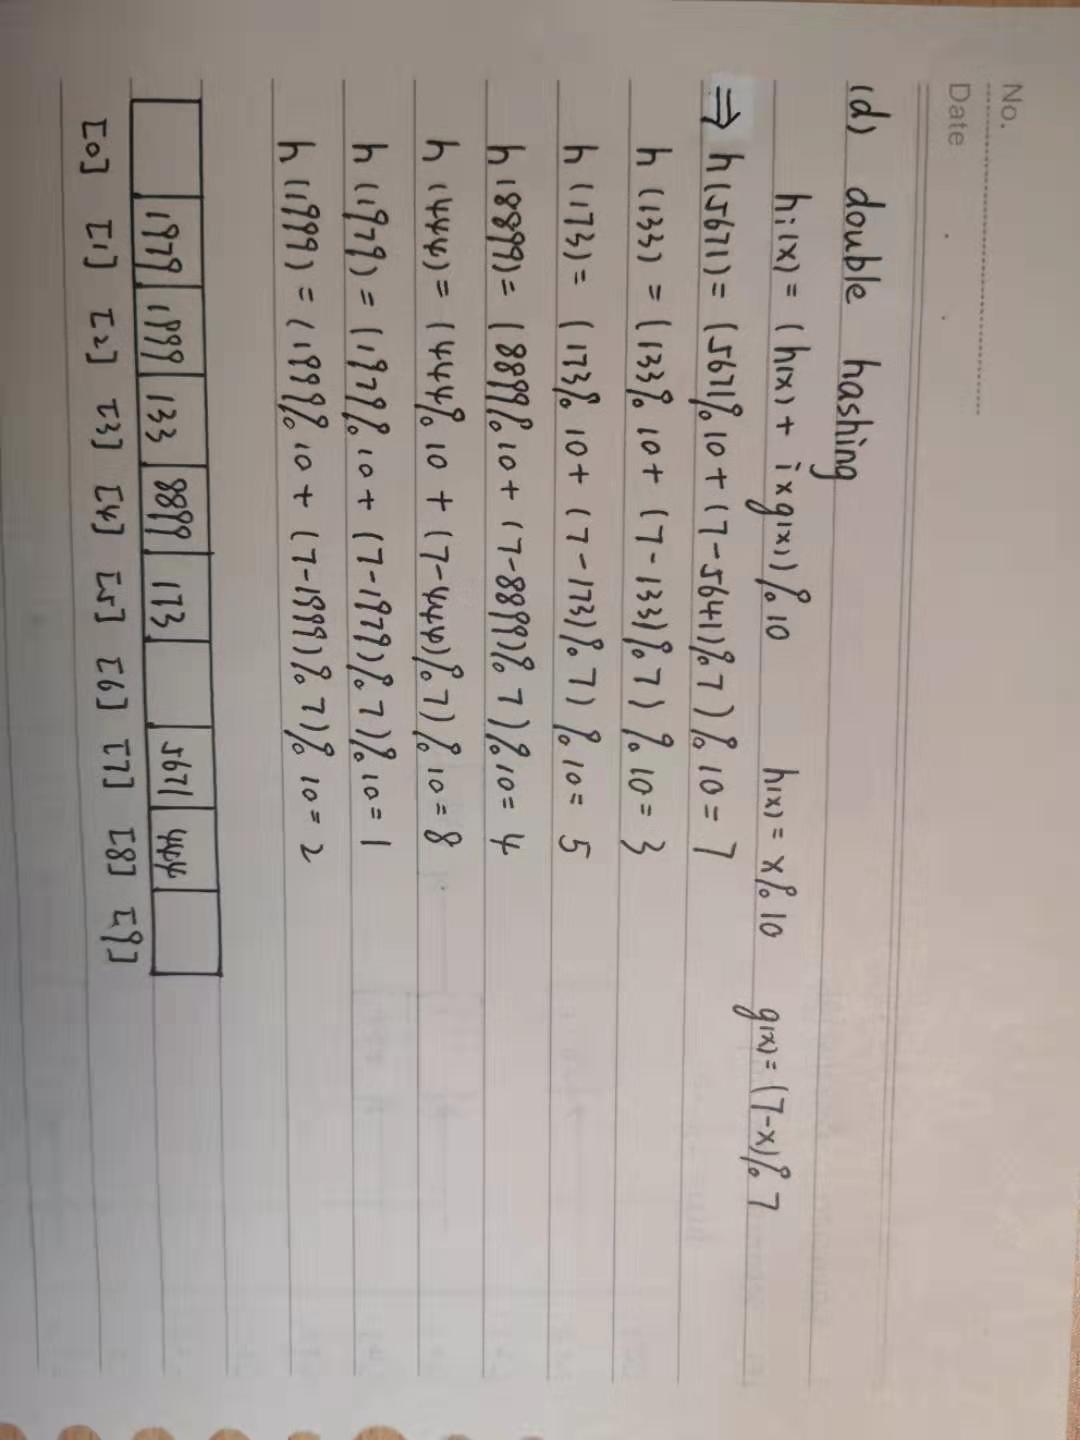 No.
Date
(d) double hashing
hi(x) = (h(x) + i x g(x)) % 10 h(x) = x % 10 g(x) = (7-x) % 7
⇒ h(5671) = (5671 % 10 + (7-5641) % 7) % 10 = 7
h(133) = (133 % 10 + (7-133) % 7) % 10 = 3
h(173) = (173 % 10 + (7-173) % 7) % 10 = 5
h(8899) = (8899 % 10 + (7-8899) % 7) % 10 = 4
h(444) = (444 % 10 + (7-444) % 7) % 10 = 8
h(1979) = (1979 % 10 + (7-1979) % 7) % 10 = 1
h(1999) = (1999 % 10 + (7-1999) % 7) % 10 = 2
1979 1999 133 8899 173 5671 444
[0] [1] [2] [3] [4] [5] [6] [7] [8] [9]